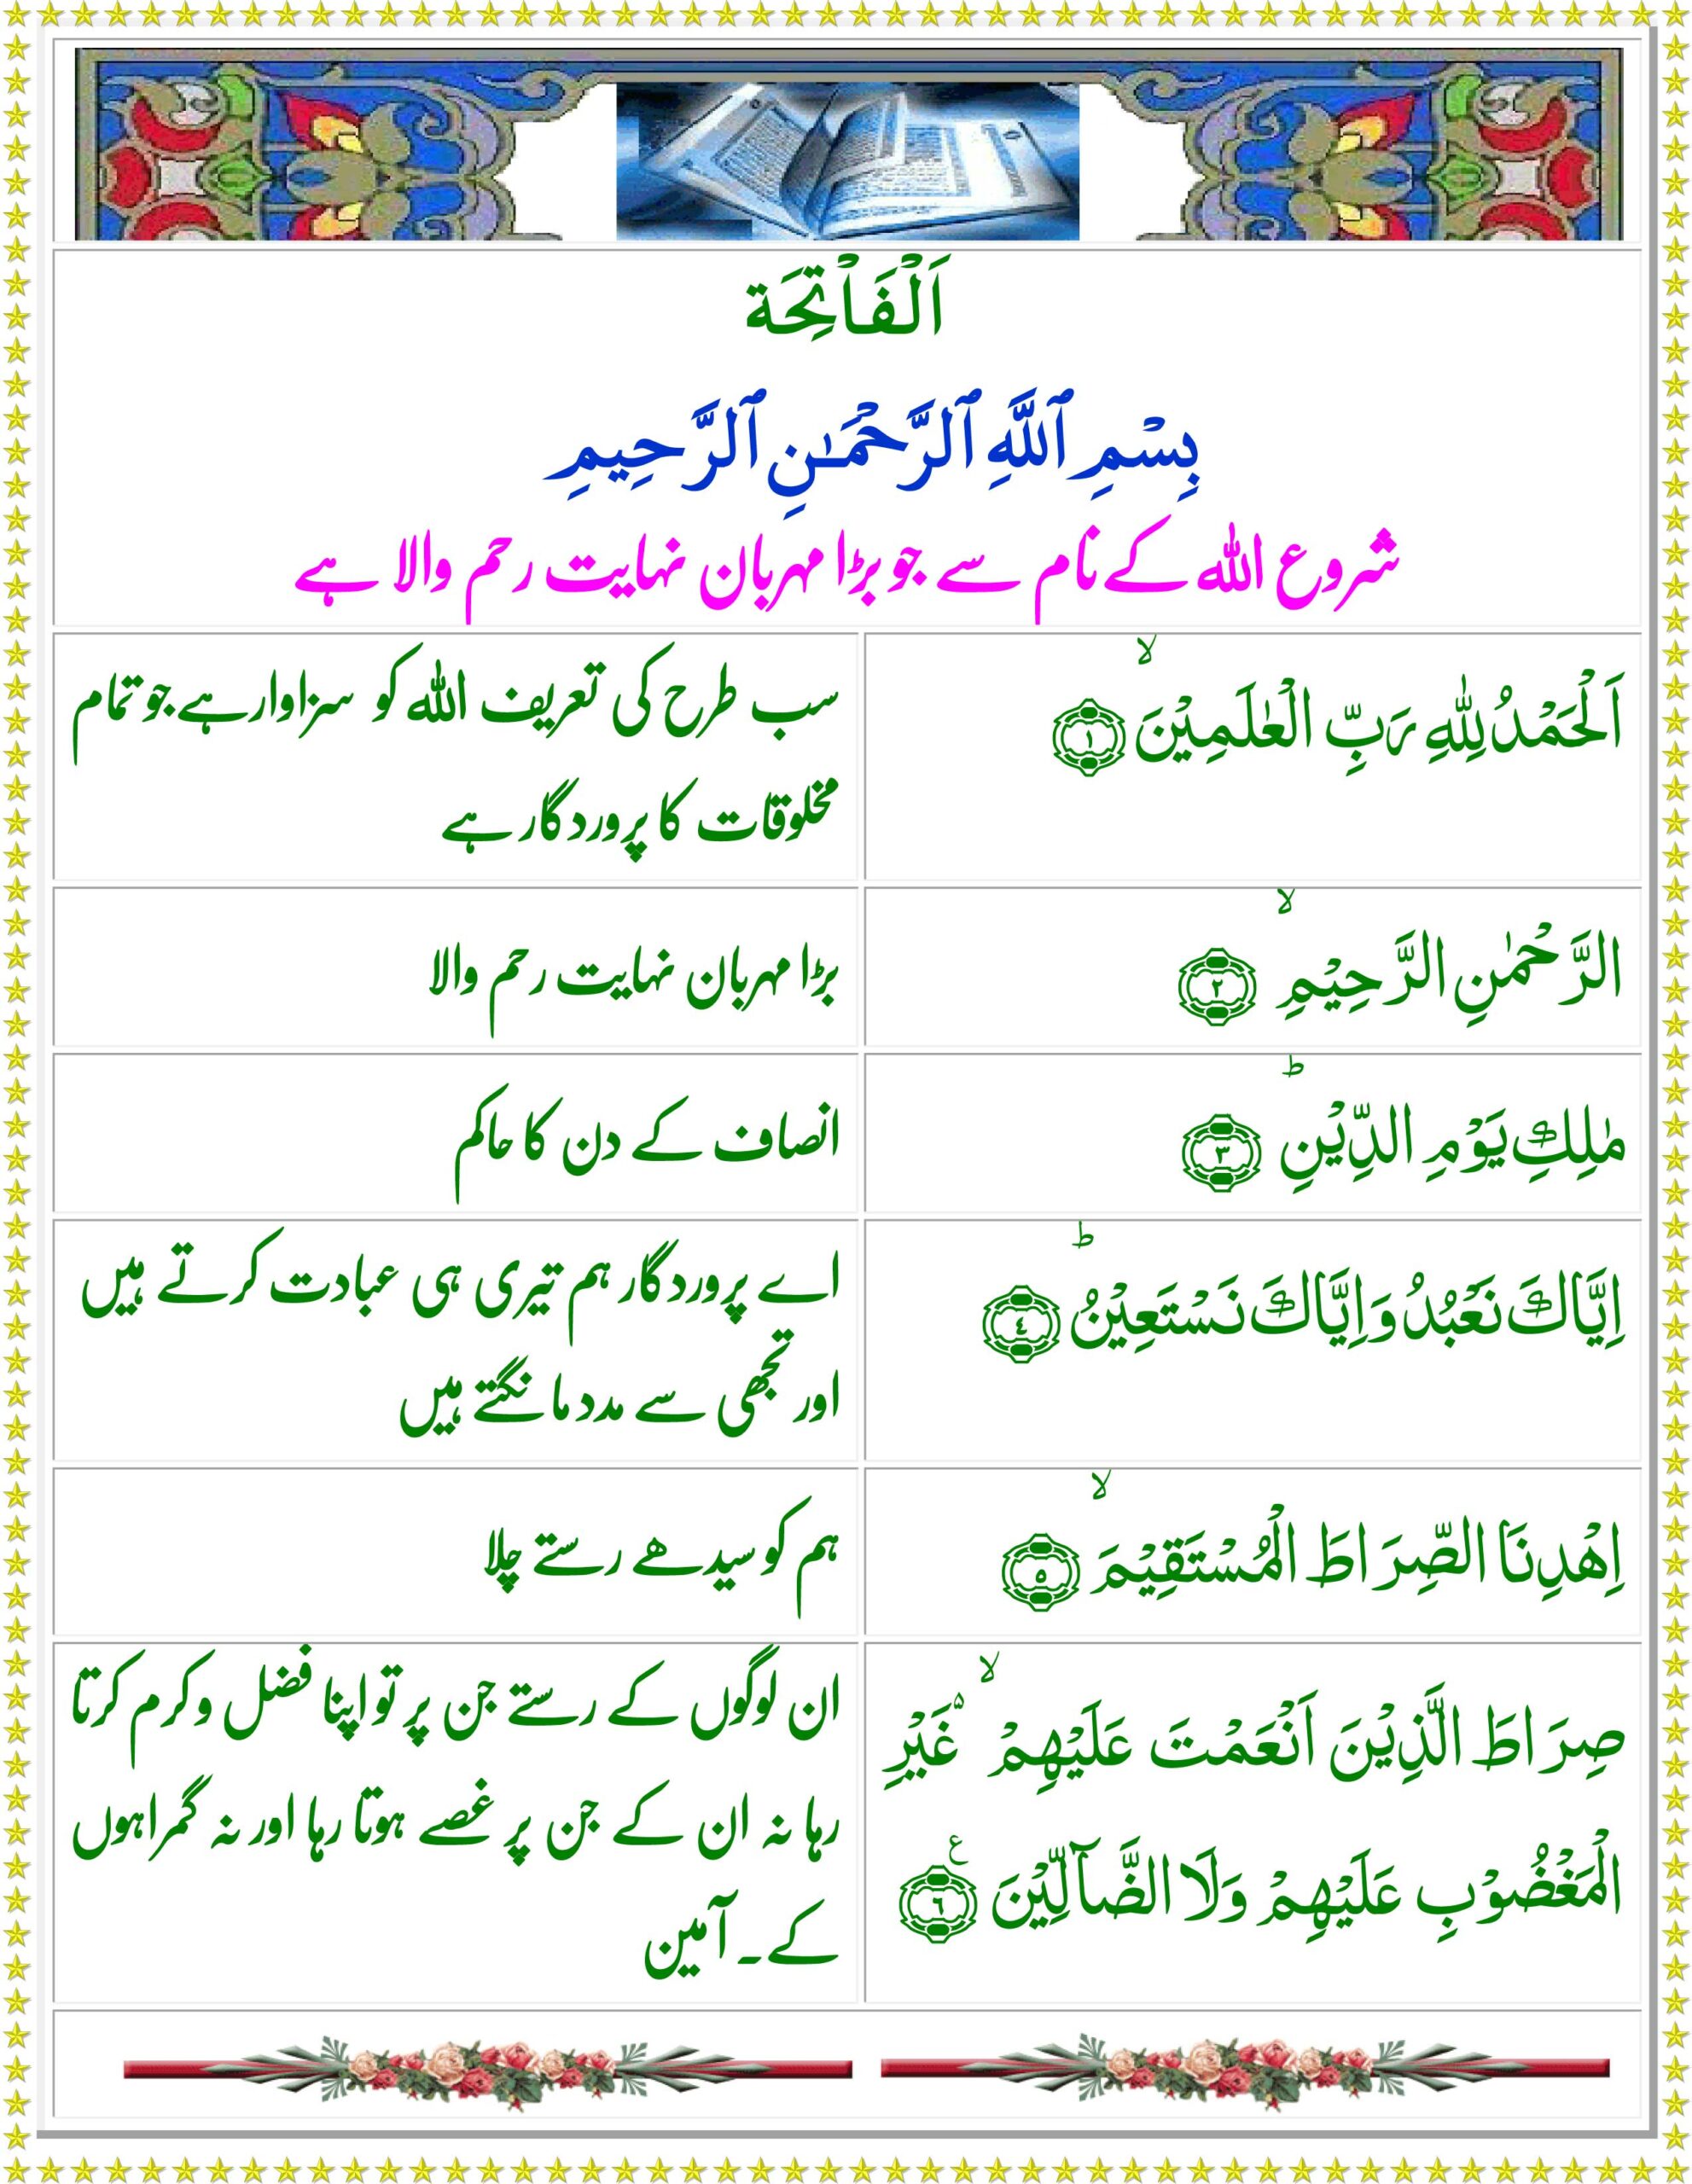 اَلْفَاْتِحَة
بِسْمِ ٱللَّهِ ٱلرَّحْمَـٰنِ ٱلرَّحِيمِ
شروع الله کے نام سے جو بڑا مہربان نہایت رحم والا ہے
اَلْحَمْدُ لِلّٰهِ رَبِّ الْعٰلَمِيْنَ ۙ‏ ﴿۱﴾
سب طرح کی تعریف الله کو سزاوار ہے جو تمام
مخلوقات کا پروردگار ہے
الرَّحْمٰنِ الرَّحِيْمِ ۙ‏ ﴿۲﴾
بڑا مہربان نہایت رحم والا
مٰلِكِ يَوْمِ الدِّيْنِ ؕ‏ ﴿۳﴾
انصاف کے دن کا حاکم
اِيَّاكَ نَعْبُدُ وَاِيَّاكَ نَسْتَعِيْنُ ؕ‏ ﴿٤﴾
اے پروردگار ہم تیری ہی عبادت کرتے ہیں
اور تجھی سے مدد مانگتے ہیں
اِهْدِنَا الصِّرَاطَ الْمُسْتَقِيْمَ ۙ‏ ﴿۵﴾
ہم کو سیدھے رستے چلا
صِرَاطَ الَّذِيْنَ اَنْعَمْتَ عَلَيْهِمْ ۙ ۵ غَيْرِ
الْمَغْضُوْبِ عَلَيْهِمْ وَلَا الضَّآلِّيْنَ ع ﴿٦﴾
ان لوگوں کے رستے جن پر تو اپنا فضل و کرم کرتا
رہا نہ ان کے جن پر غصے ہوتا رہا اور نہ گمراہوں
کے۔ آمین